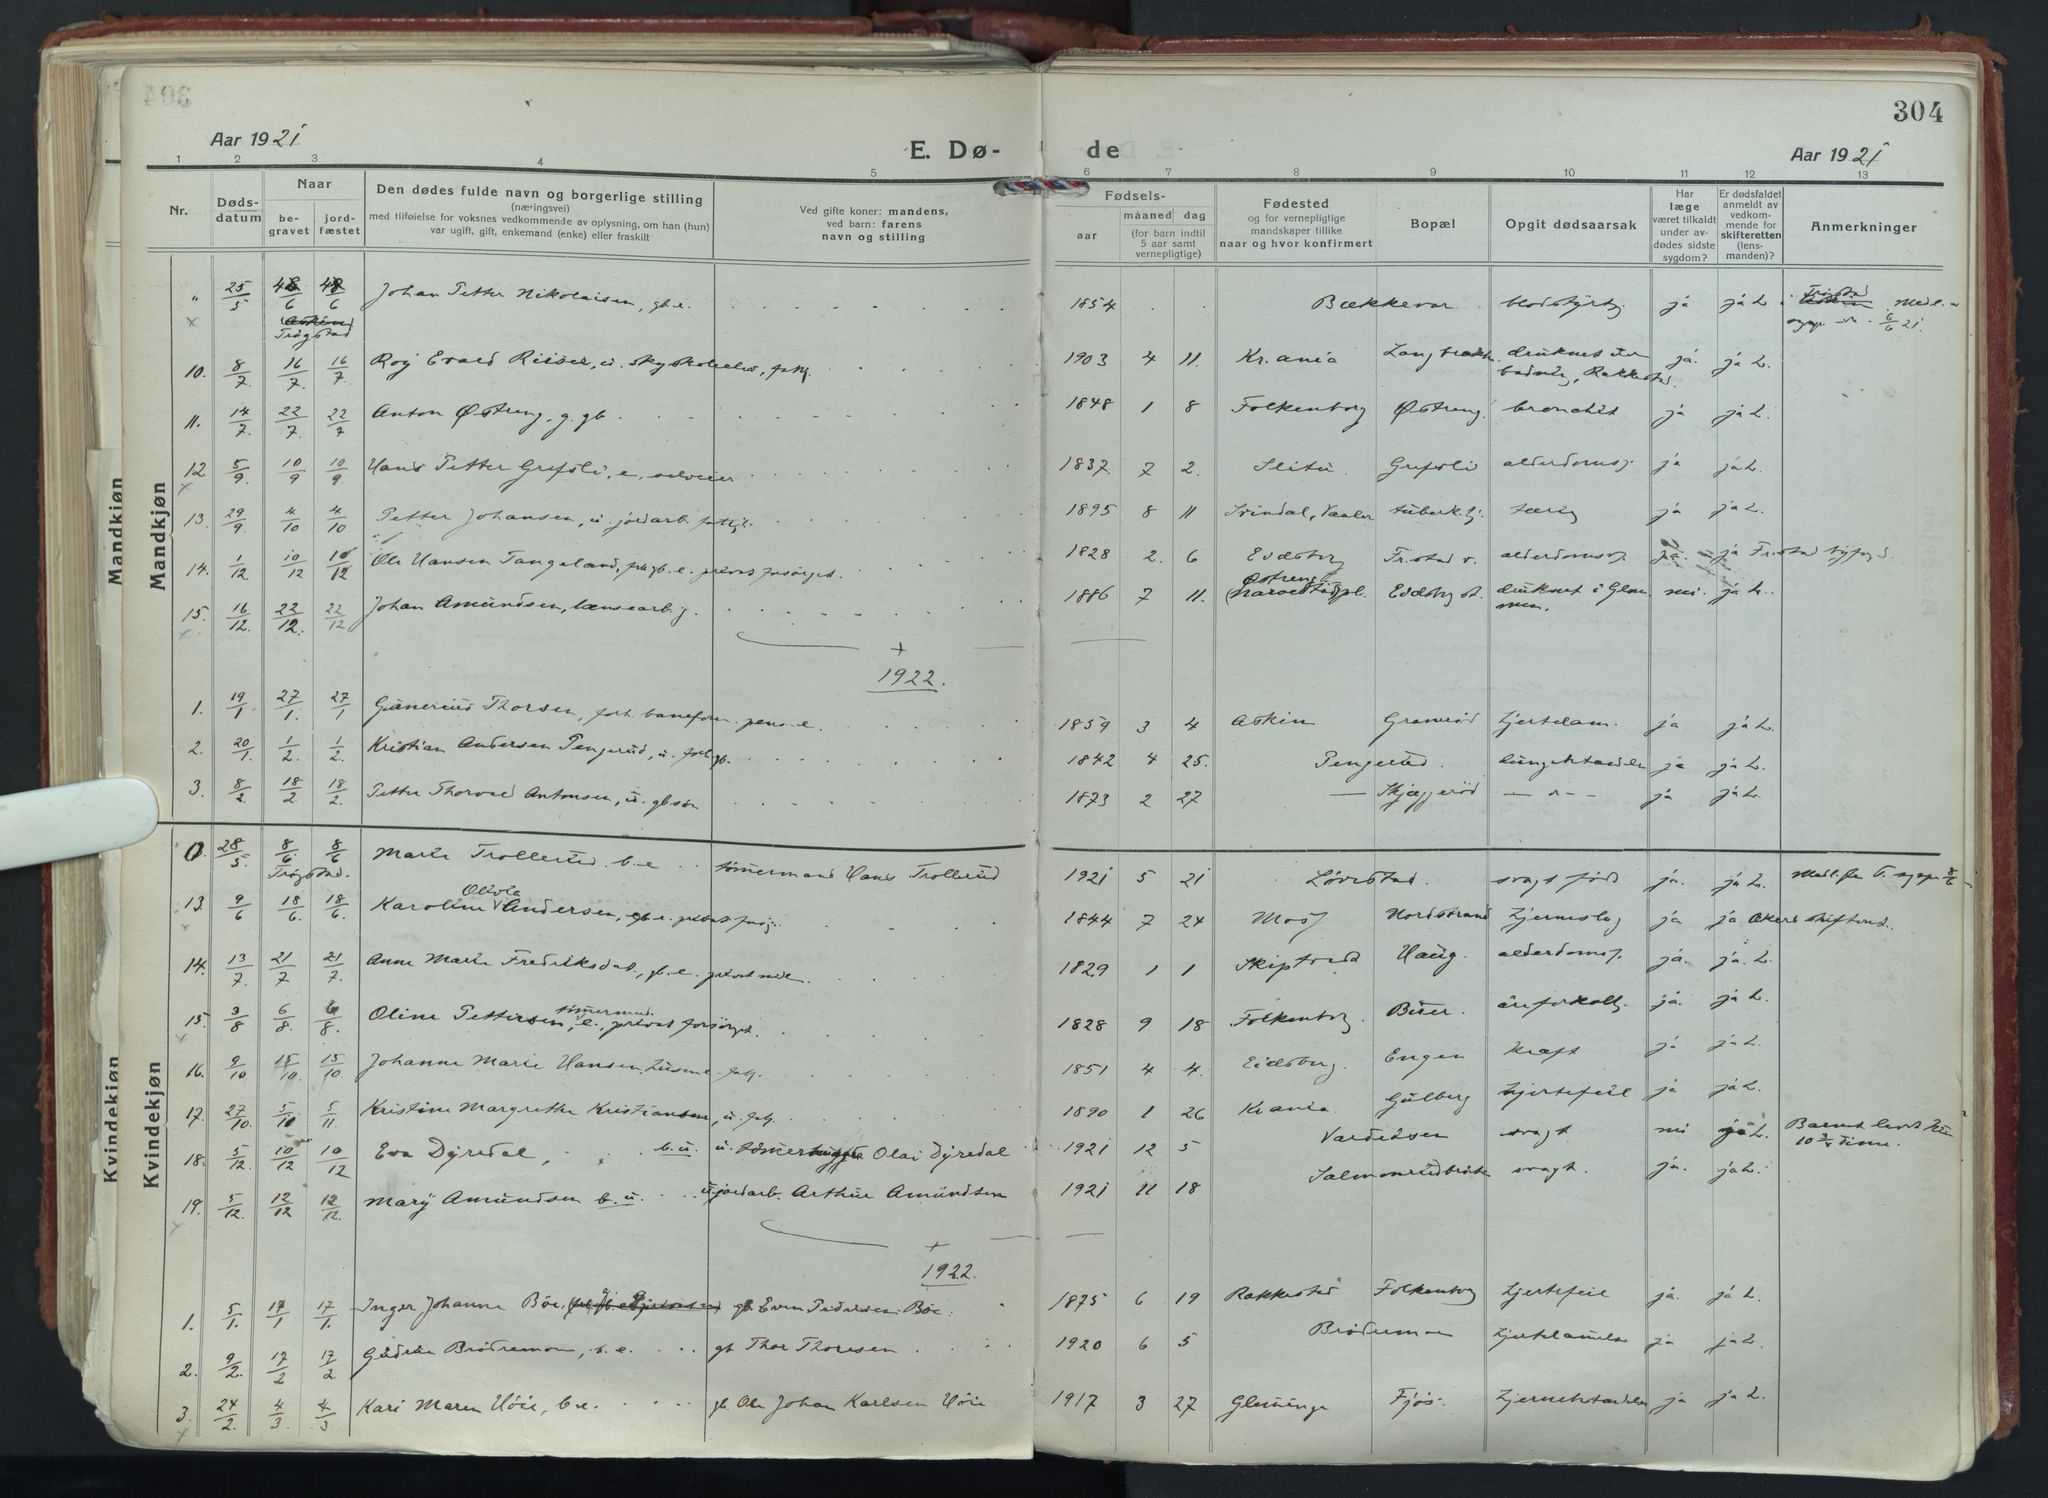 304
Aar 1921 E. Dø- de Aar 1921
1 2 3 4 5 6 7 8 9 10 11 12 13
Nr. Døds-datum Naar be-gravet jord-fæstet
Den dødes fulde navn og borgerlige stilling
(næringsvei)
med tilføielse for voksnes vedkommende av oplysning, om han (hun)
var ugift, gift, enkemand (enke) eller fraskilt
Ved gifte koner: mandens,
ved barn: farens
navn og stilling
Fødsels-
aar maaned dag
(for barn indtil
5 aar samt
vernepligtige)
Fødested
og for vernepligtige
mandskaper tillike
naar og hvor konfirmert
Bopæl
Opgit dødsaarsak
Har
læge
været tilkaldt
under av-
dødes sidste
sygdom?
Er dødsfaldet
anmeldt av
vedkom-
mende for
skifteretten
(lens-
manden)?
Anmerkninger
Mandkjøn
Mandkjøn
" 25/5 8/6 8/6 Johan Petter Nikolaisen, gb.e. 1854 Bækkevar blodstyrtg ja ja L. Trøgstad Medl.
Trøgstad
10. 8/7 16/7 16/7 Roy Evald Reiser, u. 1903 4 11. Kr.ania druknet ja. ja L.
badning, Rakkestad.
11. 14/7. 22/7. 22/7 Anton Østreng, g. gb. 1848 1 8 Folkenborg Østreng. bronchit ja ja L.
12 5/9. 10/9 10/9 Hans Petter Grefsli, e, selveier 1837. 7 2. Slitu. Grefsli alderdomss. ja ja L.
13. 29/9. 4/10 4/10 Petter Johansen, u jordarb. fattig. 1895 8 11 Svindal, Vaaler tuberk.hj. tæring ja ja L.
14. 1/12 10/12 10/12 Ole Hansen Tangeland, gb.e. privat forsørget. 1828 2. 6 Eidsberg Fr.stad v. alderdomss. ja. ja Fr.stad byfogd
15. 16/12. 22/12. 22/12 Johan Amundsen, lænsearb g. 1886 7 11. Østreng pl. Eidsberg st. druknet i Glom- nei. ja L.
men.
+
1922.
1. 19/1 27/1. 27/1 Gunerius Thorsen, forh. baneform. pens. e. 1859 3 4 Askim Gramrød hjertelam. ja ja L.
2. 20/1. 1/2. 1/2. Kristian Andersen Pengerud, u. gb. 1842 4 25. Pengerud. lungebetændelse ja ja L.
3. 8/2 18/2 18/2. Petter Thorvald Antonsen, u. gb søn 1873 2 27 — Skjeggerød — " — ja ja L.
Kvindekjøn
Kvindekjøn
0. 28/5. 8/6. 8/6 Marta Trollerud b. e tømermand Hans Trollerud 1921 5 21 Løvestad. svagt født ja. ja L. Medl. fra T. sogn 8/6
Trøgstad.
13. 9/6 18/6. 18/6. Karoline Olivia Andersen, gb.e. privat forsørg. 1844 7 24 Moss Nordstrand hjerneslag ja ja Aker skifteret.
14. 13/7 21/7 21/7. Anne Marie Fredriksdat, gb. e. 1829 1 1 Skiptvedt Haug. alderdomss. ja. ja L.
15. 3/8 6/8. 6/8. Oline Pettersen, tømermd. e., privat forsørget. 1828 9 18 Folkenborg. Buer. åreforkalkg. ja. ja L.
16. 9/10 15/10. 15/10. Johanne Marie Hansen, husm.e. fatg. 1851 4 4. Eidsberg. Engen kræft ja ja L.
17. 27/10. 5/10 5/11. Kristine Margrethe Kristiansen, u. fatg. 1890 1 26 Kr.ania. Gulberg hjertefeil ja ja L.
18. 5/12. 10/12 10/12 Eva Dyredal, b.u. u. tømerhugger Olai Dyredal 1921 12 5 Vardeåsen svagt nei ja L. Barnet levet kun
10 3/4 time.
19. 5/12. 12/12 12/12. Mary Amundsen b. u. u. jordarb. Arthur Amundsen 1921 11 18 Salmonrudbråte svagt. ja. ja L.
+
1922.
1. 5/1. 17/1 17/1. Inger Johanne Bøe, gb. Even Pedersen Bøe. 1875 6 19 Rakkestad Folkenborg hjertefeil ja. ja L.
2. 9/2. 17/2 17/2. Gudrun Brødremoen, b. e. gb Thor Thoresen 1920 6 5 Brødremoen hjertelamelse ja ja L.
3. 24/2. 4/3. 4/3 Kari Maren Høie, b.e. gb. Ole Johan Karlsen Høie 1917 3 27 Glemminge Fjøs. hjernebetændelse ja ja L.